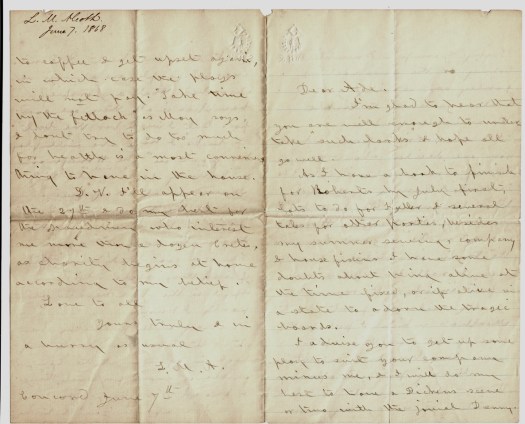 Dear Ade.
I'm glad to hear that
you are well enough to under
take such larks & hope all
go well.
As I have a book to finish
for Roberts by July first,
lots to do for Fuller & several
tales for other parties, besides
my summer sewing, company
& house fixing I have some
doubts about being alive at
the time fixed, or if alive in
a state to adorn the tragic
boards.
I advise you to get up some
play to suit your company
minus me, & I will do my
best to have a Dickens scene
or two with the jovial Denny
L. M. Alcott
June 7. 1868
to coffee & get upset again,
in which case the plays
will not pay. "Take time
by the fetlock" as May says
& dont try to do too much
for health is a most convenient
thing to have in the house.
I'll appear on
the 27th & do my best for
the who interest
me more than a dozen
as charity begins at home
according to my belief.
Love to all
yours truly & in
a hurry as usual
L. M. A.
Concord June 7th